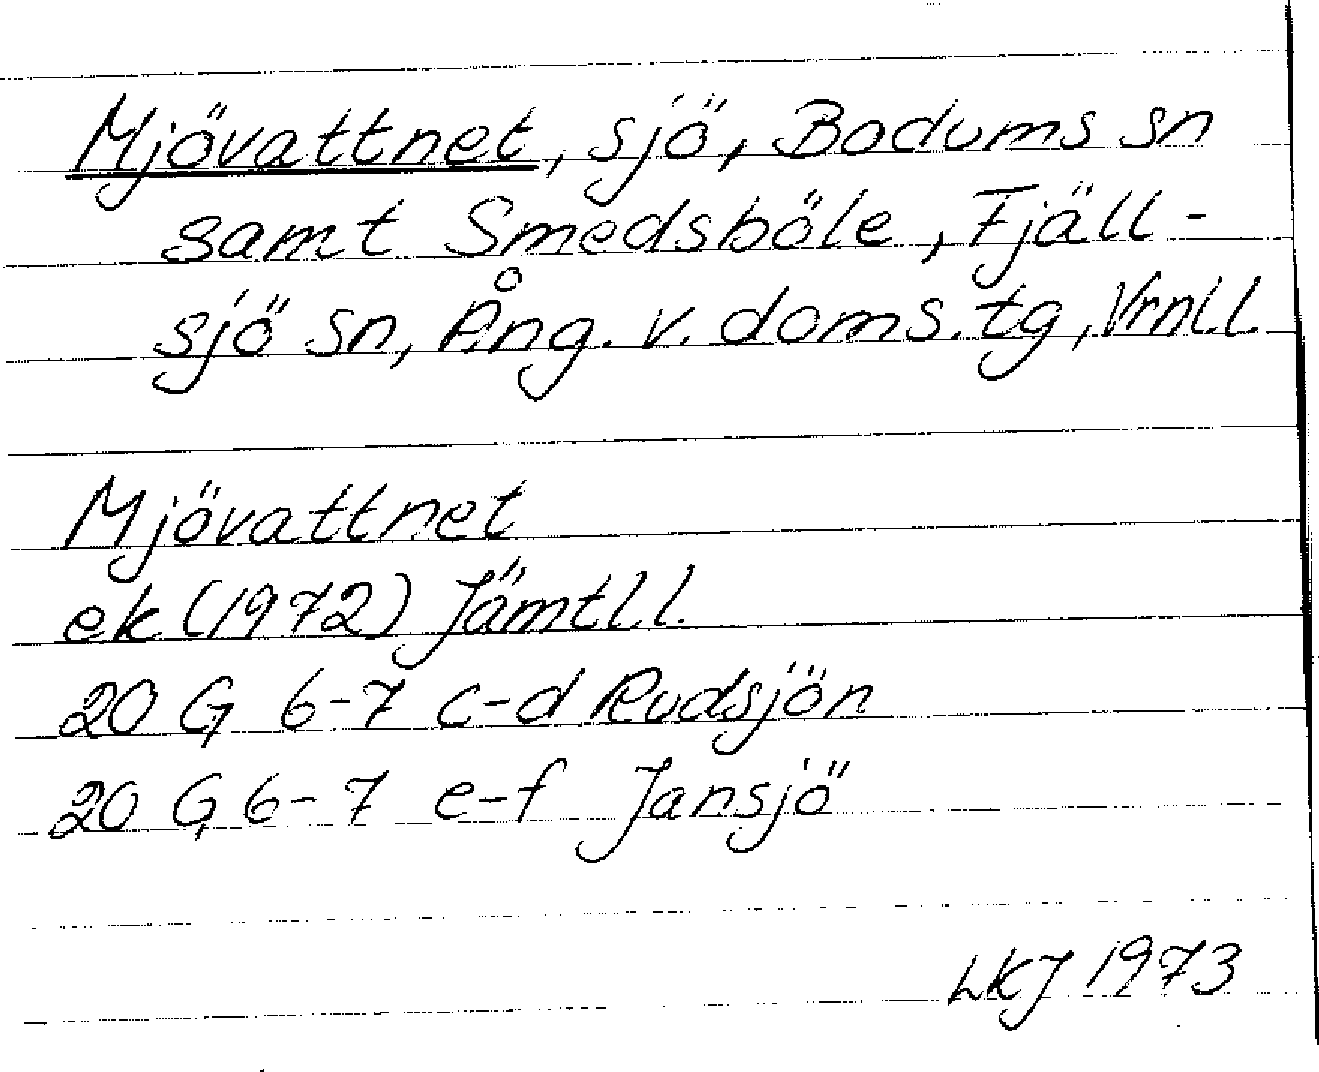 Mjövattnet, sjö, Bodums sn
samt Smedsböle, Fjäll-
sjö sn, Ång. v. doms. tg, Vrnll.
Mjövattnet
ek (1972) Jämtll.
20 G 6-7 c-d Rudsjön
20 G 6-7 e-f Jansjö
LKJ 1973